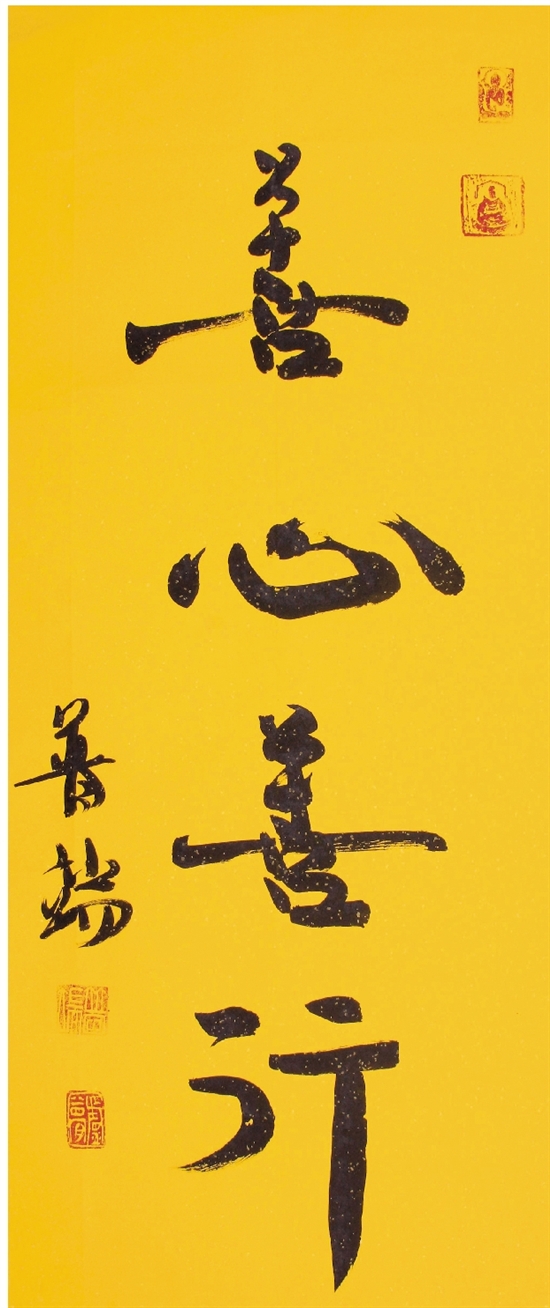 善心善行
普